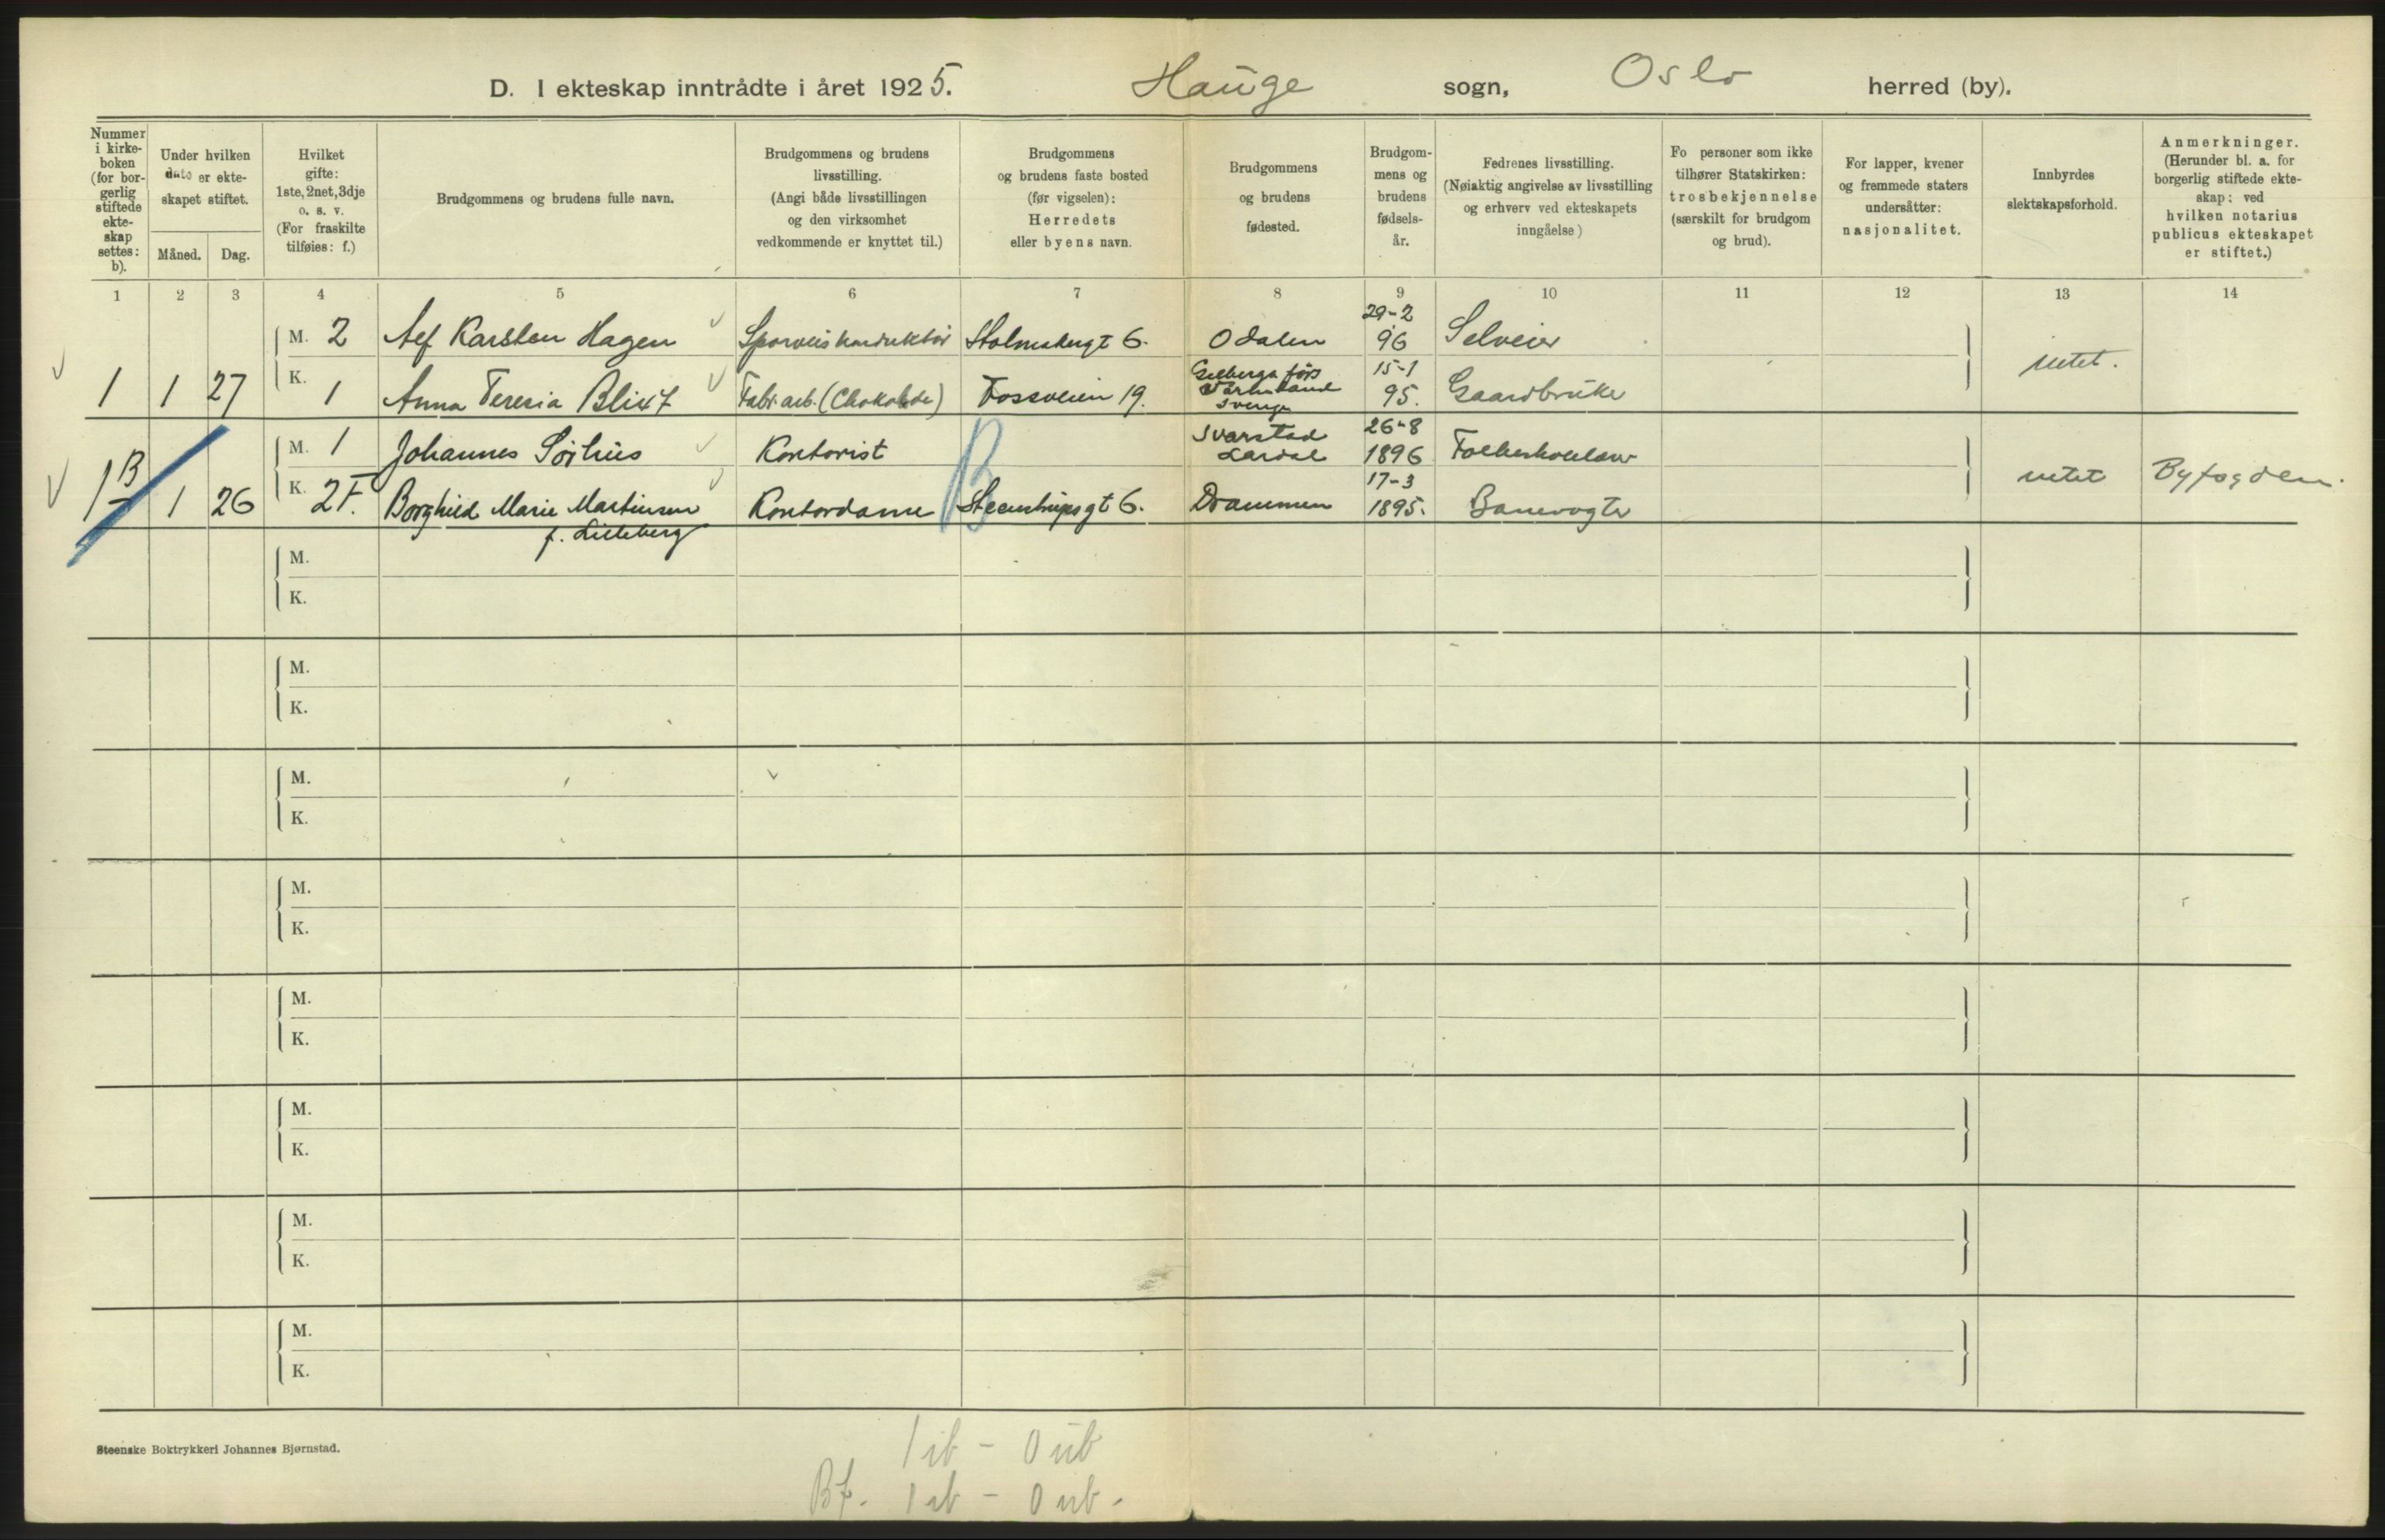 D. I ekteskap inntrådte i året 1925. Hauge sogn, Oslo herred (by).
Nummer i kirke-boken (for bor-gerlig stiftede ekte-skap settes: b).
Under hvilken dato er ekte-skapet stiftet.
Måned. Dag.
Hvilket gifte: 1ste, 2net, 3dje o. s. v. (For fraskilte tilføies: f.)
Brudgommens og brudens fulle navn.
Brudgommens og brudens livsstilling. (Angi både livsstillingen og den virksomhet vedkommende er knyttet til.)
Brudgommens og brudens faste bosted (før vigselen): Herredets eller byens navn.
Brudgommens og brudens fødested.
Brudgom-mens og brudens fødsels-år.
Fedrenes livsstilling. (Nøiaktig angivelse av livsstilling og erhverv ved ekteskapets inngåelse)
Fo personer som ikke tilhører Statskirken: trosbekjennelse (særskilt for brudgom og brud).
For lapper, kvener og fremmede staters undersåtter: nasjonalitet.
Innbyrdes slektskapsforhold.
Anmerkninger. (Herunder bl. a. for borgerlig stiftede ekte-skap: ved hvilken notarius publicus ekteskapet er stiftet.)
1 2 3 4 5 6 7 8 9 10 11 12 13 14
29-2
M. 2 Alf Karsten Hagen Sporveiskonduktör Holmskugt 6. Odalen 96 Selveier
intet.
15-1
1 1 27 K. 1 Anna Teresia Blixt Fabr. arb. (Chokolade) Fossveien 19. Värmland Sverige 95. Gaardbruker
26-8
M. 1 Johannes Sörhus Kontorist Svarstad Lardal 1896 Folkeskolelærer
intet Byfogden.
17-3
1B 1 26 K. 2 F. Borghild Marie Martinsen Kontordame B Steenstrupsgt 6. Drammen 1895. Banevogter
f. Lilleberg
M.
K.
M.
K.
M.
K.
M.
K.
M.
K.
M.
K.
M.
K.
M.
K.
Steenske Boktrykkeri Johannes Bjørnstad.
1 ib - 0 ub
Bf. 1 ib - 0 ub.